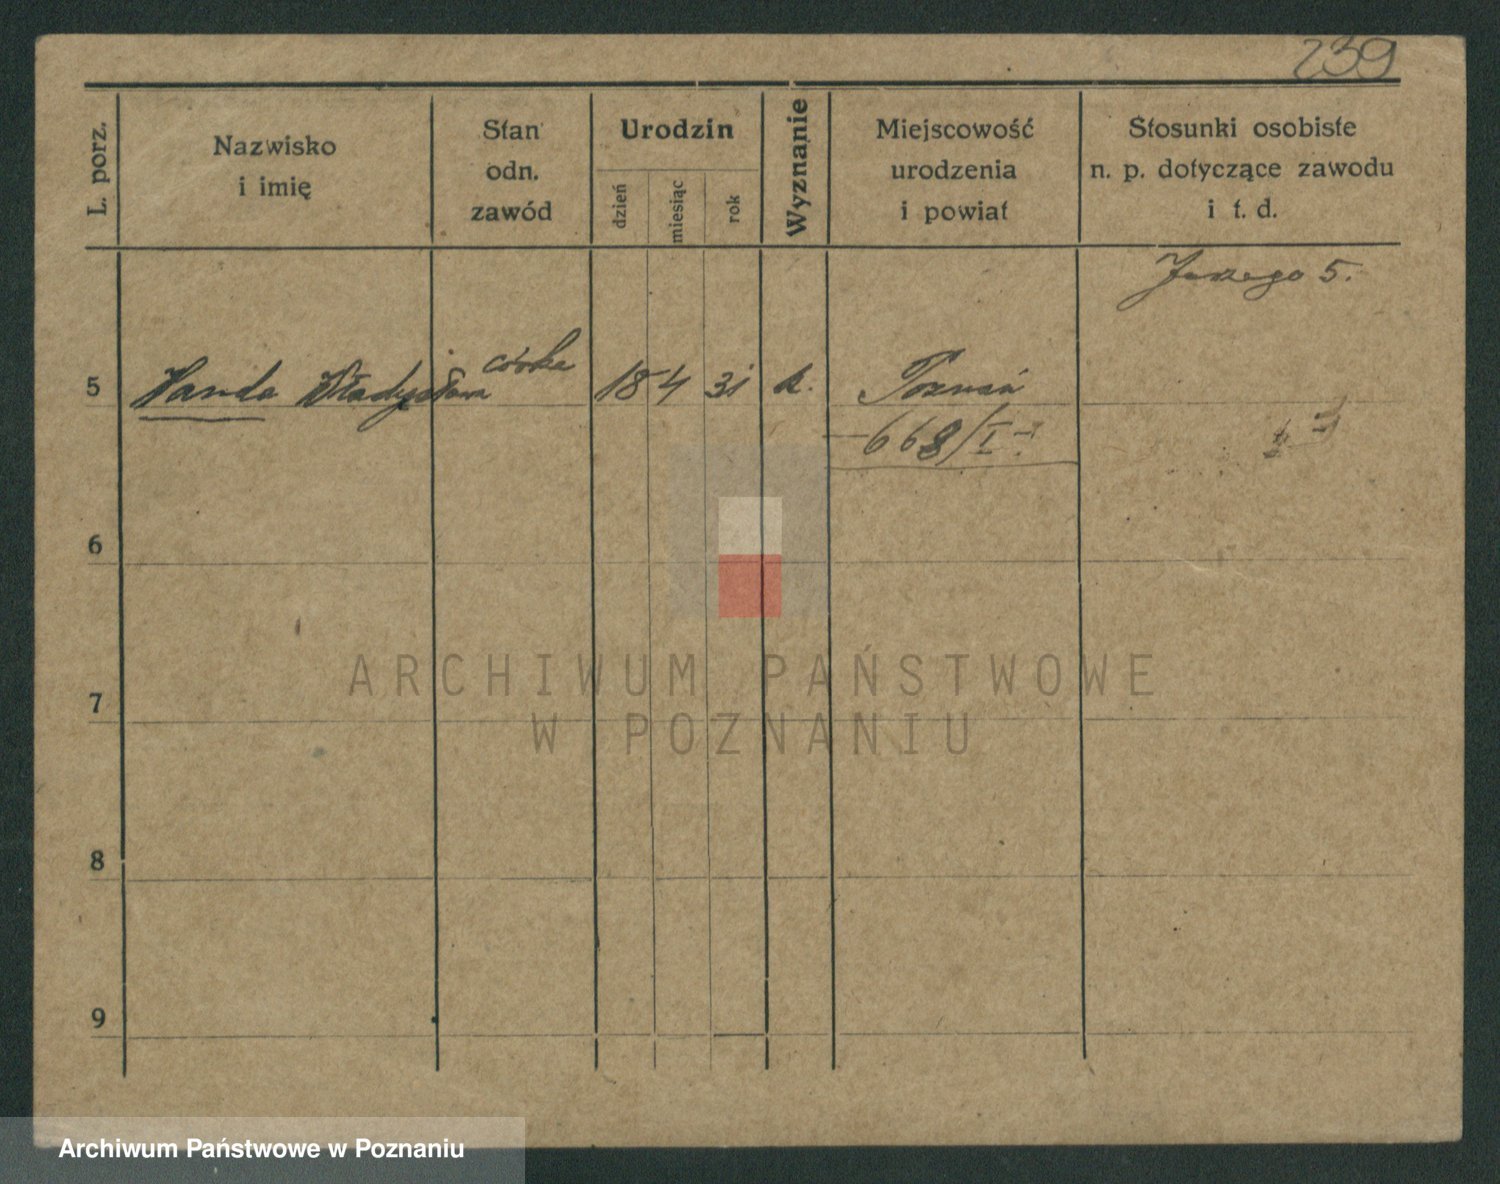 239
L. porz.
Nazwisko
i imię
Stan
odn.
zawód
Urodzin
dzień
miesiąc
rok
Wyznanie
Miejscowość
urodzenia
i powiat
Stosunki osobiste
n. p. dotyczące zawodu
i t. d.
5.
5 Wanda Władysława córka 18 4 31 k. Poznań
668/I
6
7
8
9
ARCHIWUM PAŃSTWOWE
W POZNANIU
Archiwum Państwowe w Poznaniu